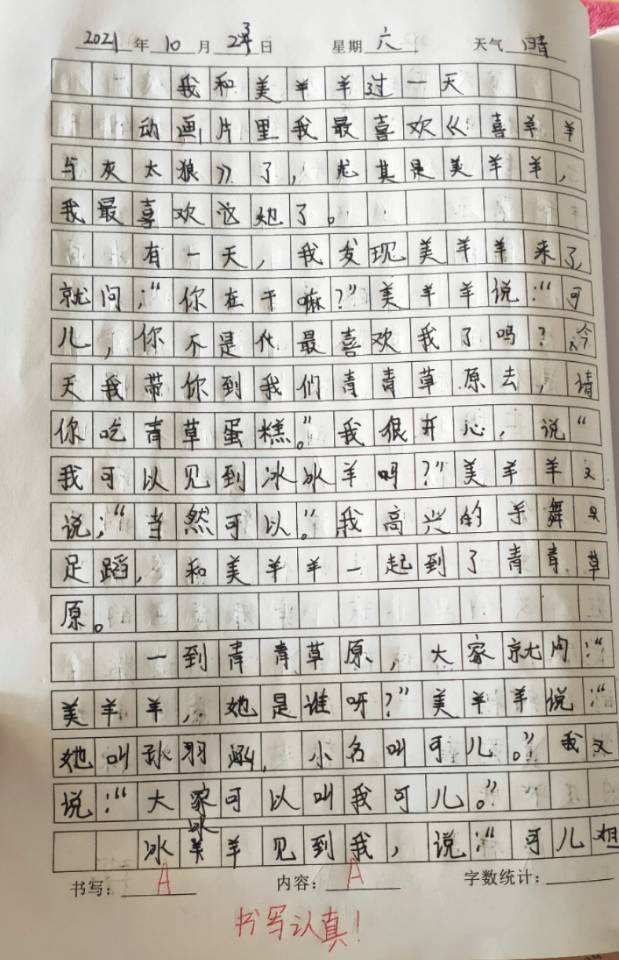 2021年10月23日 星期六 天气晴
我和美羊羊过一天
动画片里我最喜欢《喜羊羊
与灰太狼》了，尤其是美羊羊，
我最喜欢她了。
有一天，我发现美羊羊来了，
就问：“你在干嘛？”美羊羊说：“可
儿，你不是最喜欢我了吗？今
天我带你到我们青青草原去，请
你吃青草蛋糕。”我很开心，说“
我可以见到冰冰羊吗？”美羊羊又
说：“当然可以”。我高兴的手舞
足蹈，和美羊羊一起到了青青草
原。
一到青青草原，大家就问：“
美羊羊，她是谁呀？”美羊羊说：“
她叫孙羽涵，小名叫可儿。”我又
说：“大家可以叫我可儿。”
冰冰羊见到我，说：“可儿相
书写：A 内容：A 字数统计：
书写认真！